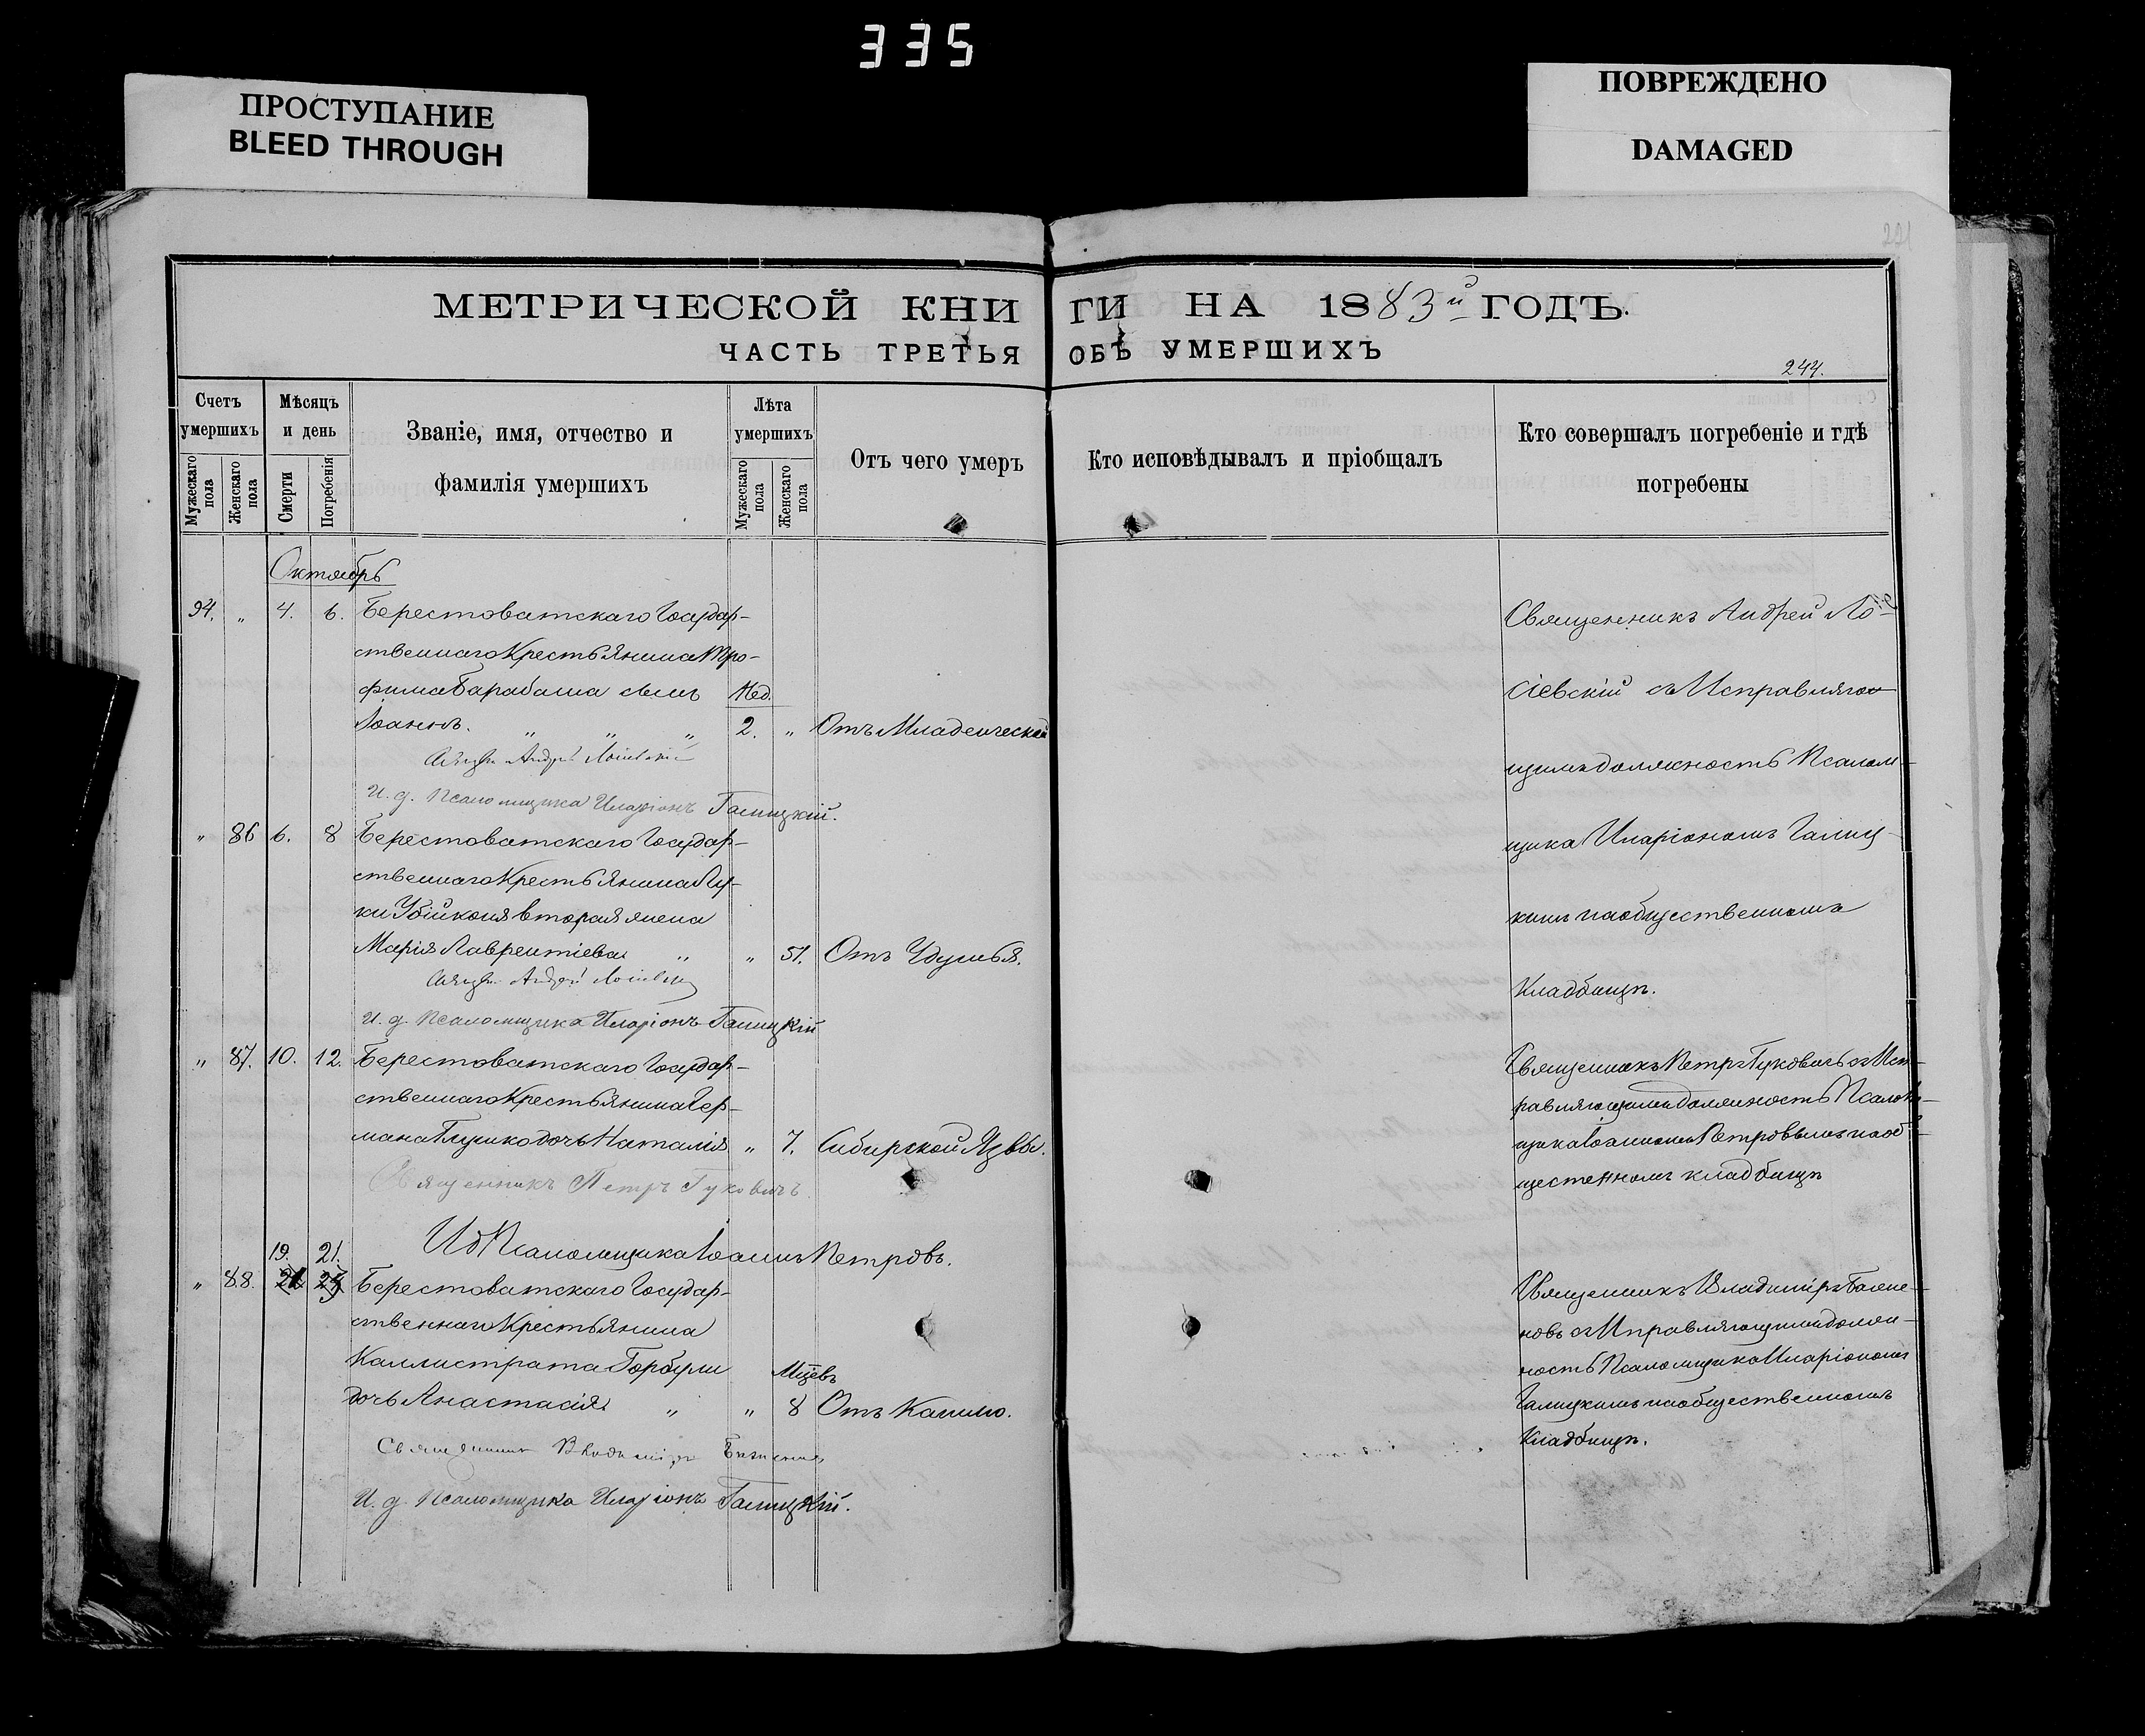 335
ПРОСТУПАНИЕ
BLEED THROUGH
ПОВРЕЖДЕНО
DAMAGED
МЕТРИЧЕСКОЙ КНИ ГИ НА 1883й ГОДЪ.
ЧАСТЬ ТРЕТЬЯ ОБЪ УМЕРШИХЪ
244.
Счетъ умершихъ
Мужескаго пола
Женскаго пола
Мѣсяцъ и день
Смерти
Погребенія
Званіе, имя, отчество и
фамилія умершихъ
Лѣта умершихъ
Мужескаго пола
Женскаго пола
Отъ чего умеръ
Кто исповѣдывалъ и пріобщалъ
Кто совершалъ погребеніе и гдѣ
погребены
Октябрь
94. „ 4. 6. Берестоватскаго Государ-
ственнаго Крестьянина Тро-
фима Барабаша сынъ Нед.
Іоаннъ. „ „ „ 2. „ Отъ Младенческой
Андрей Лосіевскій
И. д. Псаломщика Иларіонъ Галицкій.
Священникъ Андрей Ло-
сіевскій съ Исправляю-
щимъ должность Псалом-
щика Иларіономъ Галиц-
кимъ на общественномъ
Кладбищѣ.
„ 86 6. 8 Берестоватскаго Государ-
ственнаго Крестьянина Лу-
ки Убійконя вторая жена
Марія Лаврентіева „ „ 51. Отъ Удушья.
Андрей Лосіевскій
И. д. Псаломщика Иларіонъ Галицкій
„ 87. 10. 12. Берестоватскаго Государ-
ственнаго Крестьянина Гер-
мана Глушко дочь Наталія „ 7. Сибирской Язвы.
Священникъ Петръ Гуковичъ
ИдПсаломщика Іоаннъ Петровъ.
Священникъ Петръ Гуковичъ съ Исп-
равляющимъ должность Псалом-
щика Іоанномъ Петровымъ на об-
щественномъ кладбищѣ
19. 21.
„ 88. Берестоватскаго Государ-
ственнаго Крестьянина
Каллистрата Горбули Мцевъ
дочь Анастасія „ „ 8 Отъ Кашлю.
Священникъ Владиміръ
И. д. Псаломщика Иларіонъ Галицкій.
Священникъ Владиміръ
новъ съ Иправляющимъ долж-
ность Псаломщика Иларіономъ
Галицкимъ на общественномъ
Кладбищѣ.